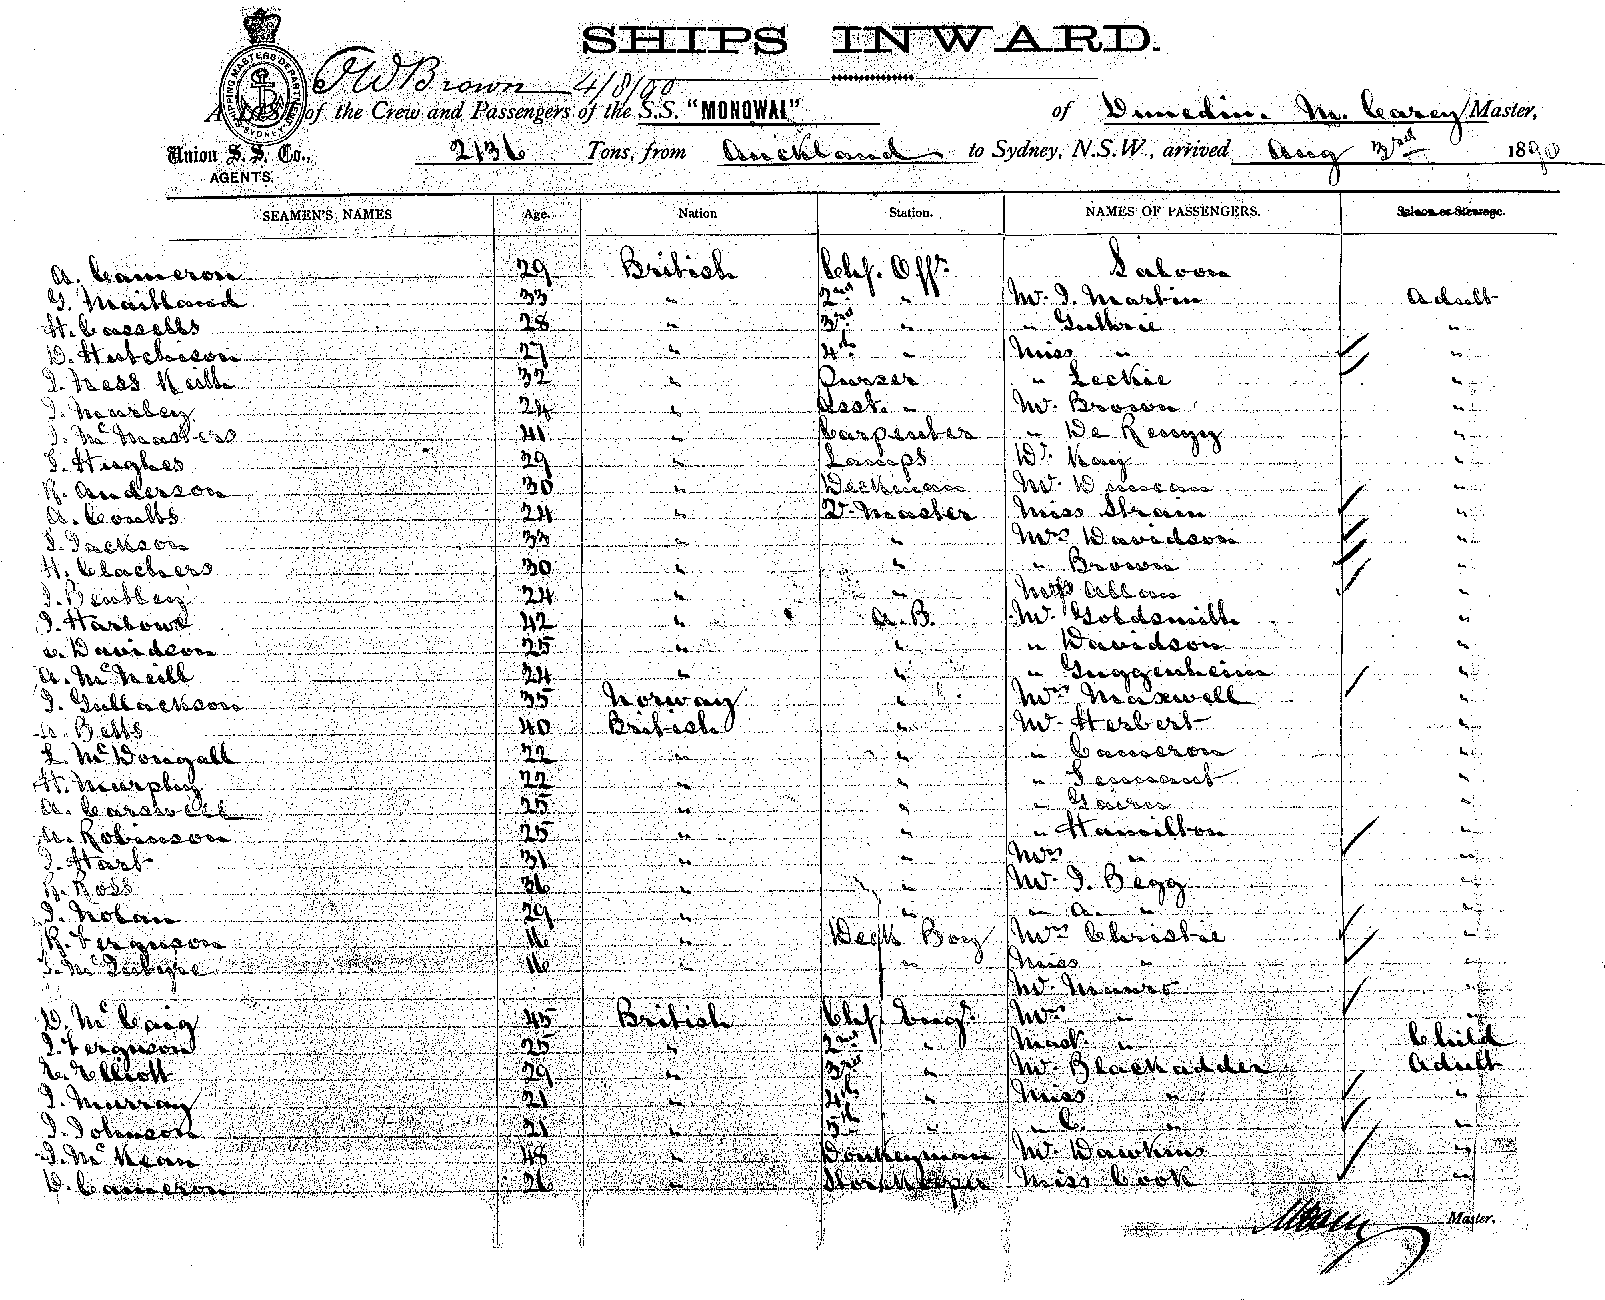 SHIPS INWARD.
SHIPPING MASTERS DEPARTMENT
SYDNEY
JW Brown 4/8/90
A LIST of the Crew and Passengers of the S.S. "MONOWAI" of Dunedin. M. Carey Master,
Union S. S. Co., AGENTS.
2136 Tons, from Auckland to Sydney, N.S.W., arrived Aug 3rd 1890
SEAMEN'S NAMES Age. Nation Station. NAMES OF PASSENGERS. Saloon or Steerage.
A. Cameron 29 British Chf. Offr. Saloon
G. Maitland 33 " 2nd " Mr. J. Martin Adult
H. Cassells 28 " 3rd " " Guthrie "
D. Hutchison 27 " 4th " Miss " "
J. Ness Keith 32 " Purser " Leckie "
24 " Asst. " Mr. Brown "
J. McMasters 41 " Carpenter " De Renzy "
J. Hughes 29 " Lamps Dr. Kay "
R. Anderson 30 " Deckman Mr. Duncan "
A. Coutts 24 " Q. Master Miss "
J. Jackson 33 " " Mrs Davidson "
H. 30 " " " Brown "
J. Bentley 24 " " Allan "
J. Harlowe 42 " A.B. Mr. Goldsmith "
Davidson 25 " " " Davidson "
A. McNeill 24 " " " Guggenheim "
J. Gullackson 35 Norway " Mrs Maxwell "
Betts 40 British " Mr. Herbert "
L. McDougall 22 " " " Cameron "
H. Murphy 22 " " " Tennent "
A. Carswell 25 " " " "
Robinson 25 " " " Hamilton "
J. Hart 31 " " Mrs " "
Ross 36 " " Mr. J. Begg "
J. Nolan 29 " " " A. " "
R. Ferguson 16 " Deck Boy Mrs Christie "
J. McIntyre 16 " " Miss " "
Mr. Munro "
D. McCaig 45 British Chf. Engr. Mrs " "
J. Ferguson 25 " 2nd " Mast. " Child
E. Elliott 29 " 3rd " Mr. Blackadder Adult
J. Murray 21 " 4th " Miss " "
J. Johnson 21 " 5th " " C. " "
J. McKean 48 " Donkeyman Mr. Dawkins "
D. Cameron 26 " Storekeeper Miss Cook "
MCarey Master.